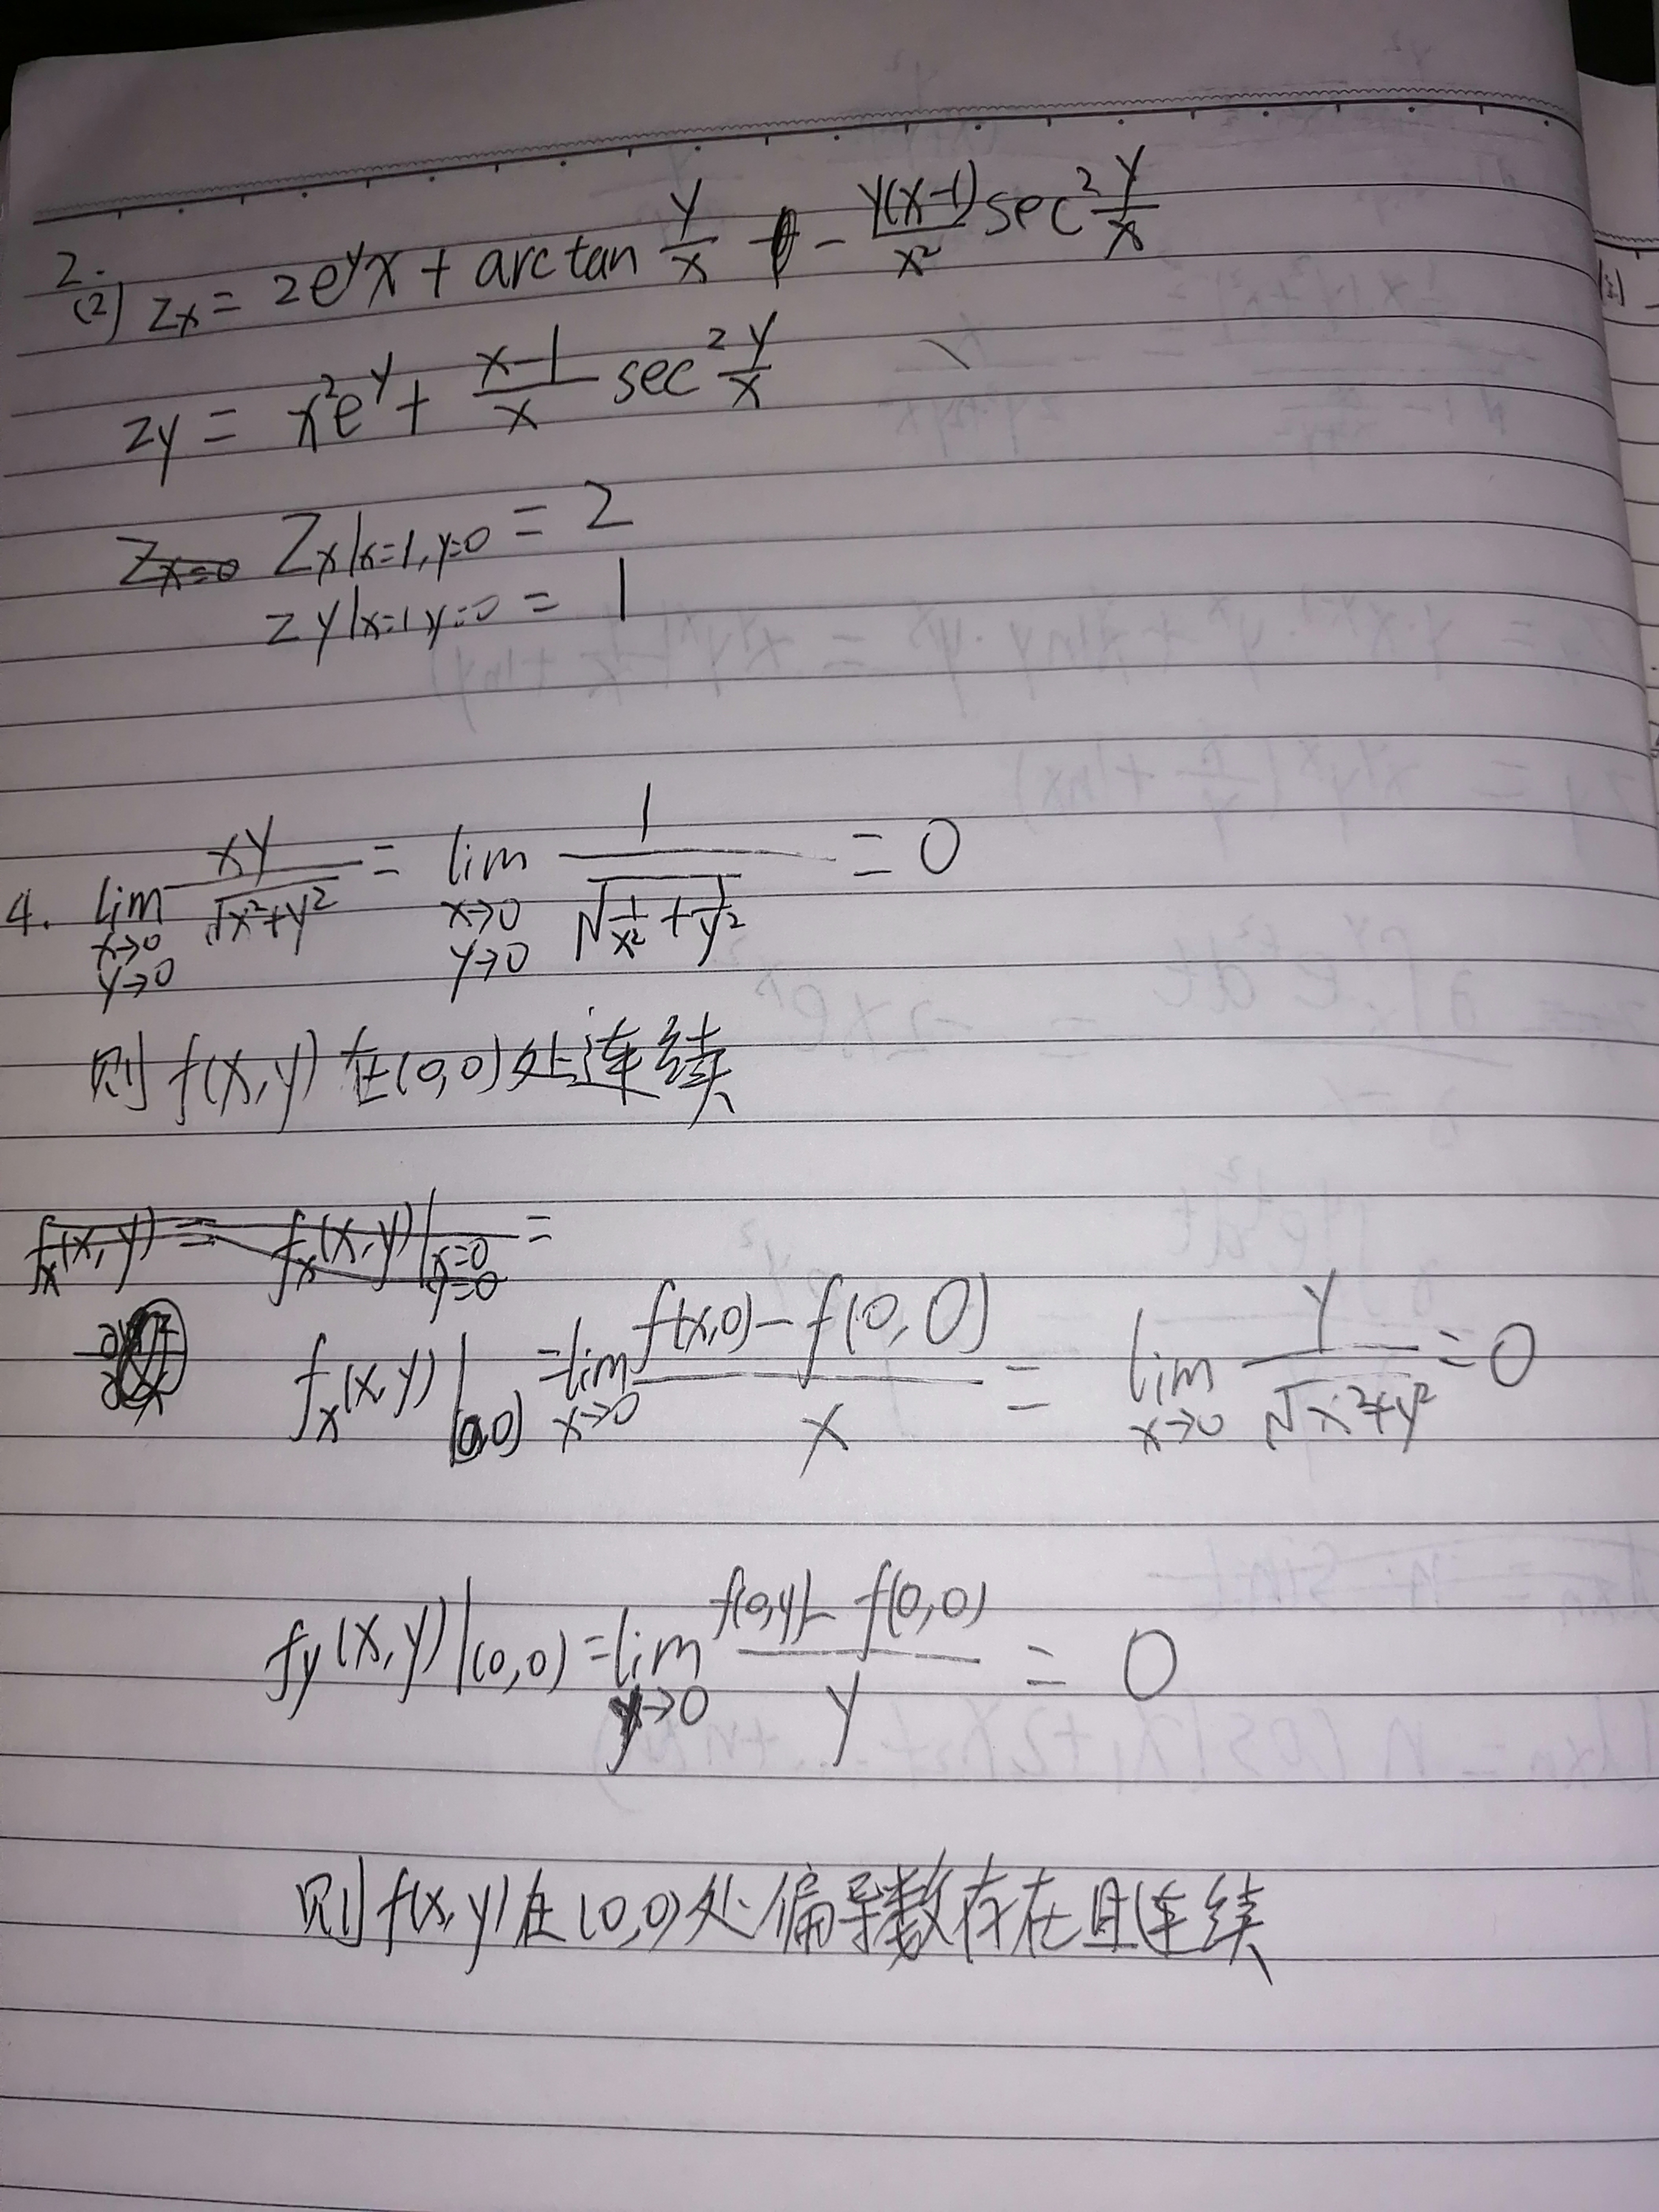 2.
(2) Zx = 2e^y x + arctan y/x - y(x-1)/x² sec² y/x
Zy = x²e^y + (x-1)/x sec² y/x
Zx=0 Zx|x=1,y=0 = 2
Zy|x=1,y=0 = 1
4. lim x→0 y→0 xy/√(x²+y²) = lim x→0 y→0 1/√(1/x²+1/y²) = 0
则 f(x,y) 在(0,0)处连续
fx(x,y) = fx(x,y)|x=0 y=0 =
fx(x,y)|(0,0) = lim x→0 (f(x,0) - f(0,0))/x = lim x→0 y/√(x²+y²) = 0
fy(x,y)|(0,0) = lim y→0 (f(0,y) - f(0,0))/y = 0
则 f(x,y)在(0,0)处偏导数存在且连续